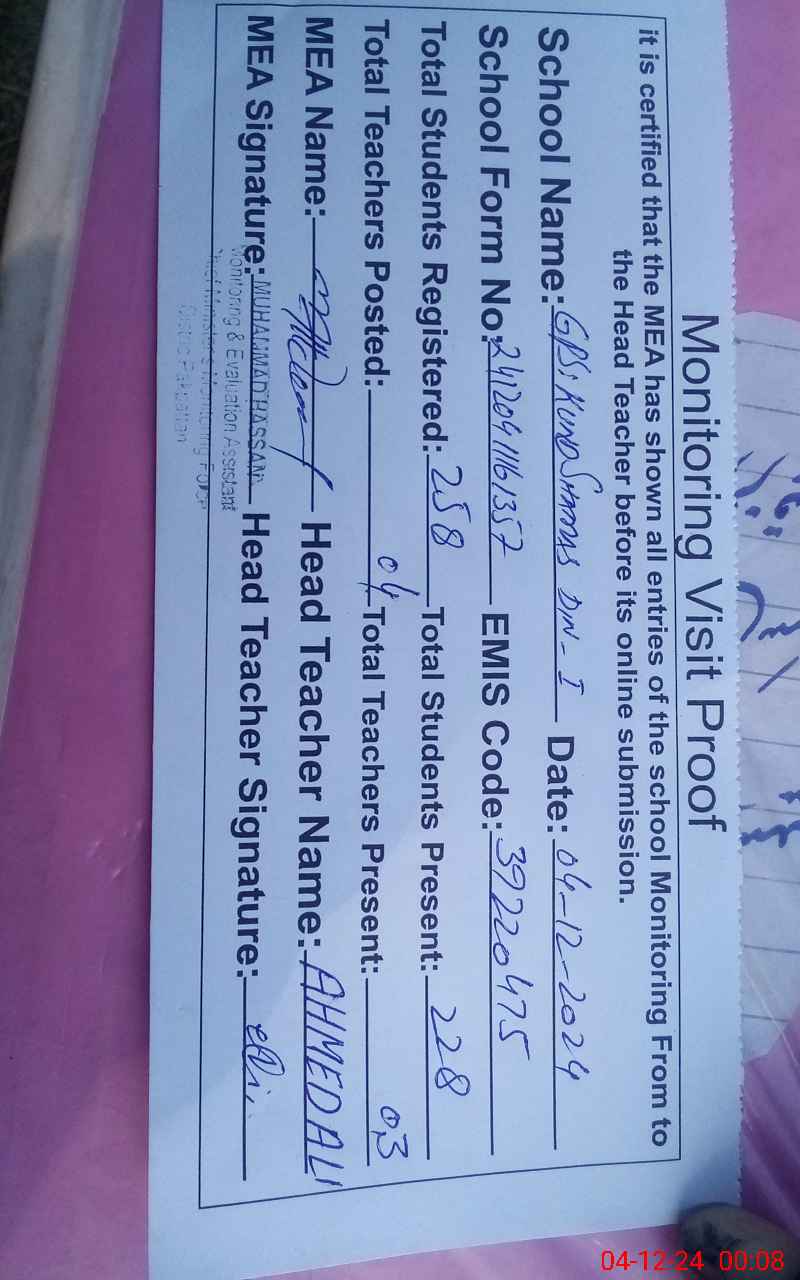 Monitoring Visit Proof
it is certified that the MEA has shown all entries of the school Monitoring From to
the Head Teacher before its online submission.
School Name: GPS: KUND SHAMUS DIN-I Date: 04-12-2024
School Form No: 24120411161357 EMIS Code: 39220475
Total Students Registered: 258 Total Students Present: 228
Total Teachers Posted: 04 Total Teachers Present: 03
MEA Name: Head Teacher Name: AHMED ALI
MEA Signature: MUHAMMAD HASSAN Head Teacher Signature:
Monitoring & Evaluation Assistant
Chief Minister's Monitoring Force
District Pakpattan
04-12-24 00:08